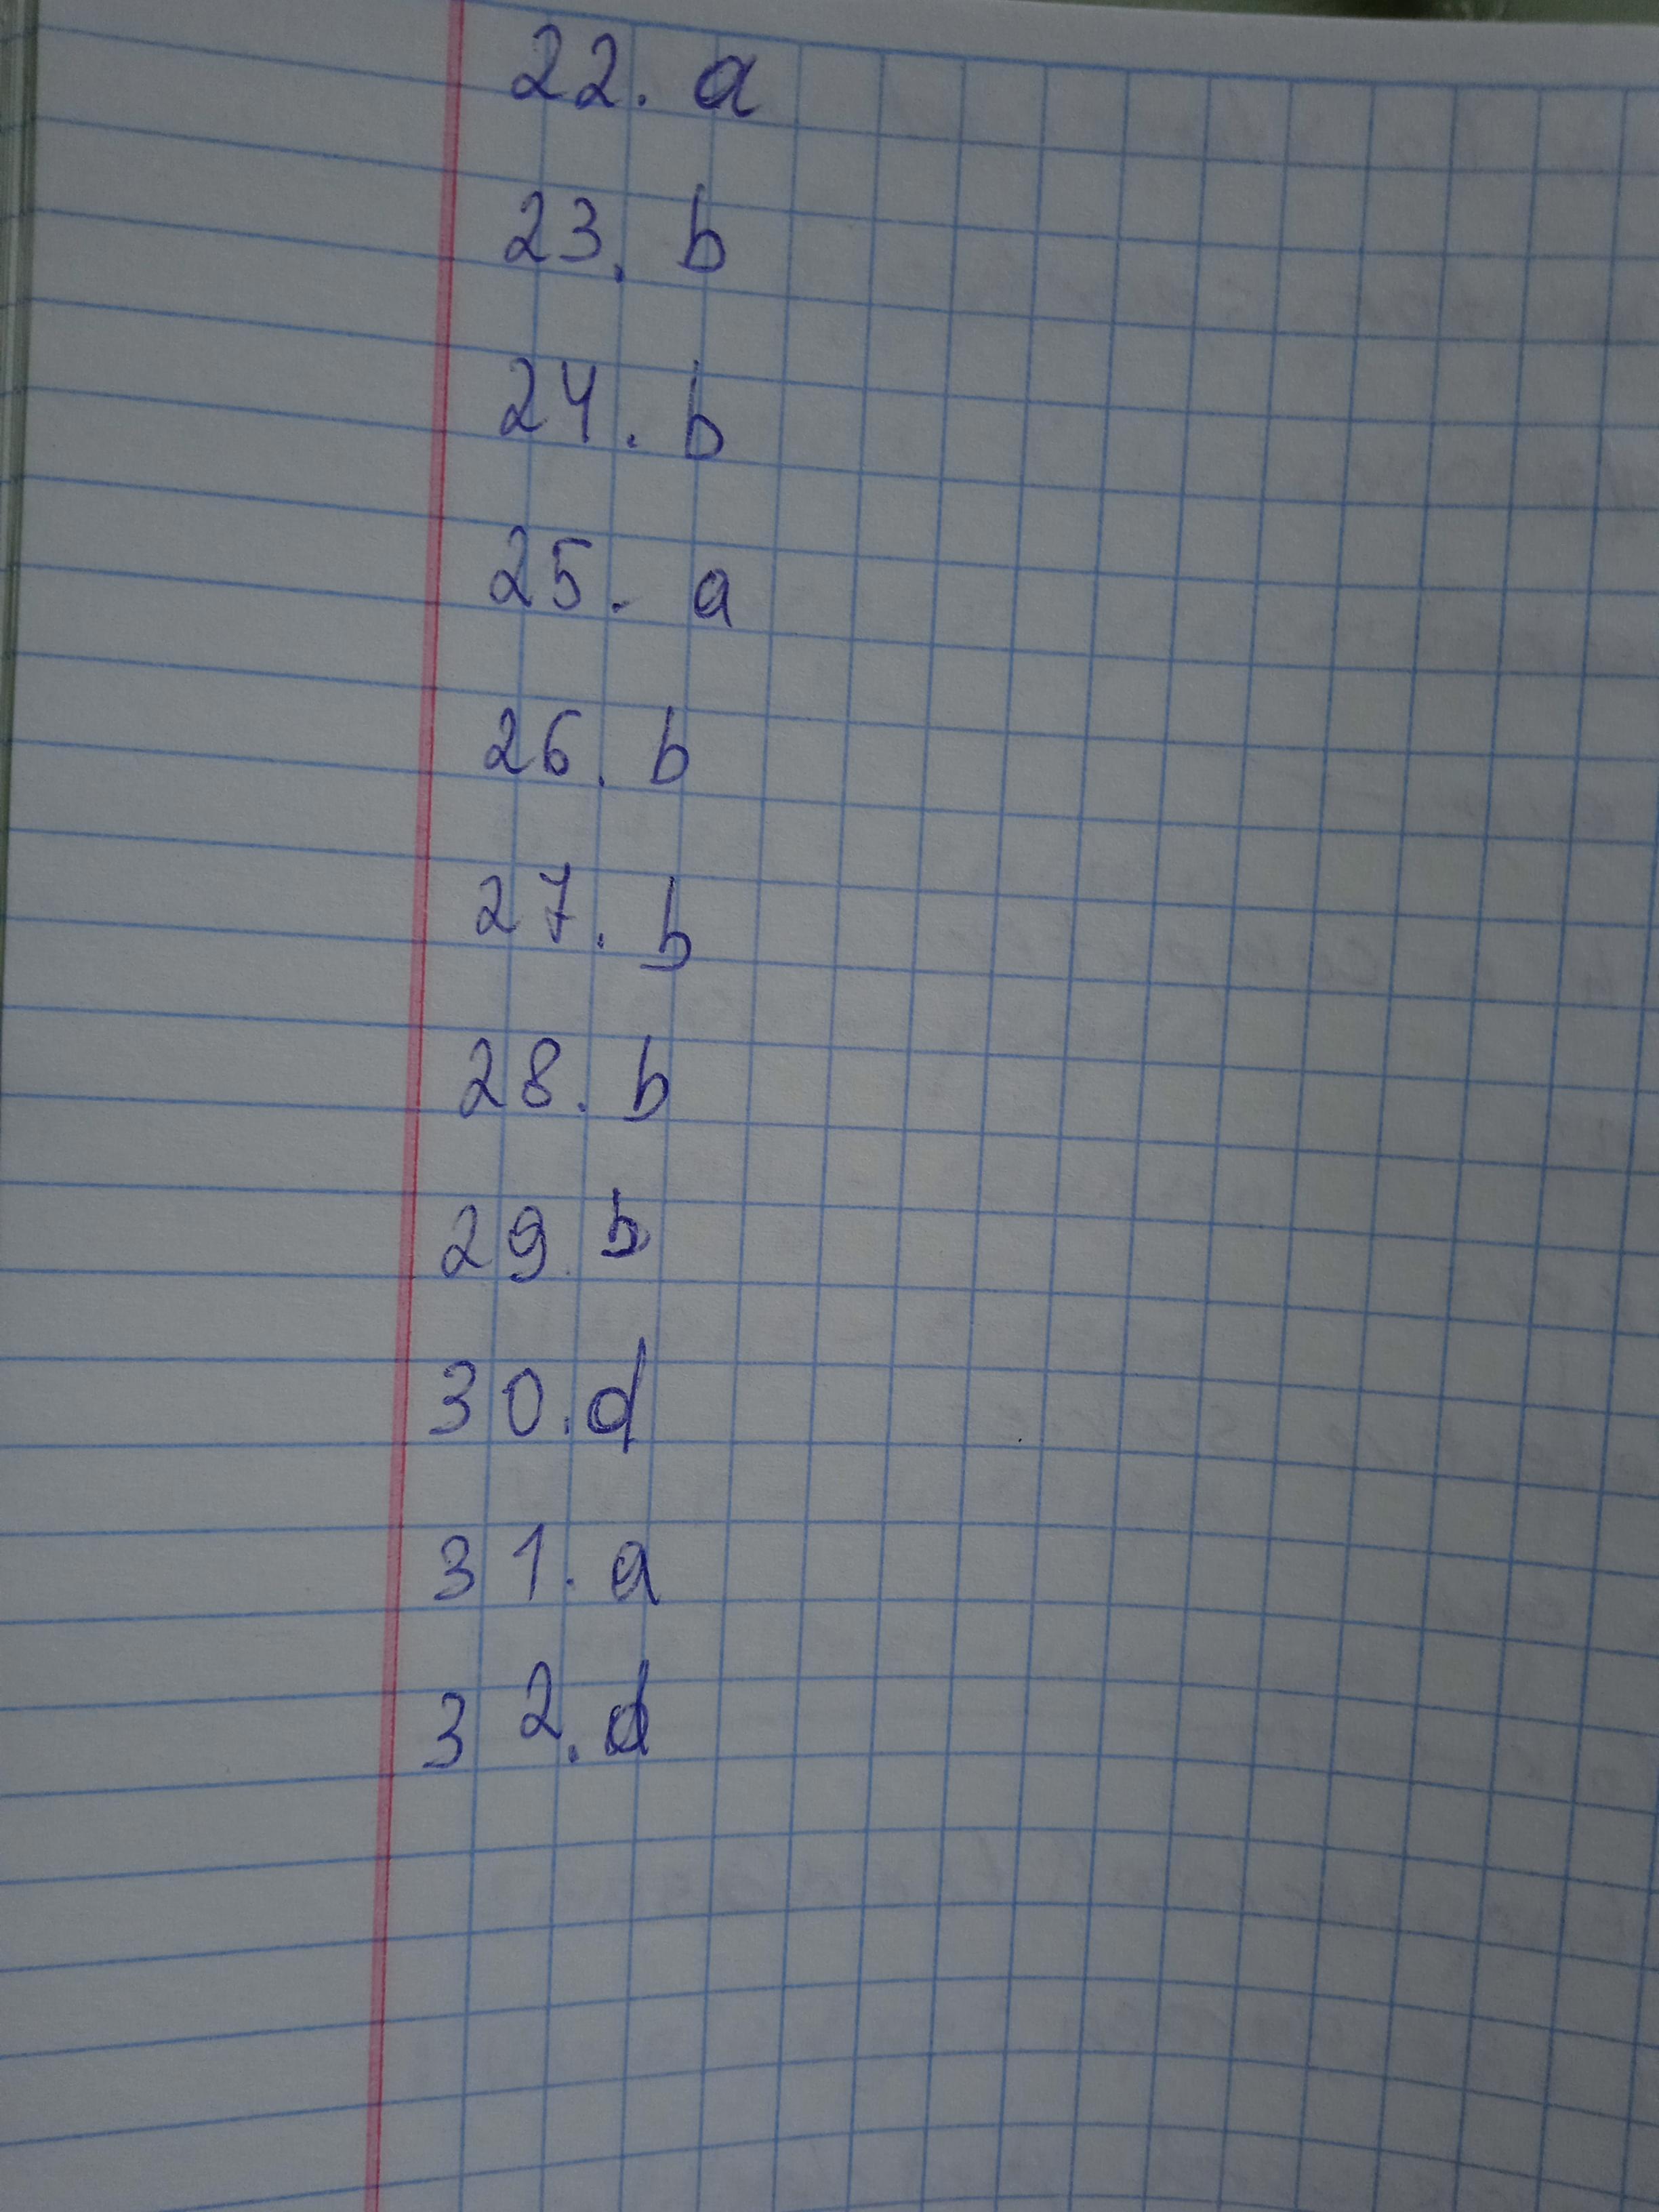 22. a
23. b
24. b
25. a
26. b
27. b
28. b
29. b
30. d
31. a
32. d